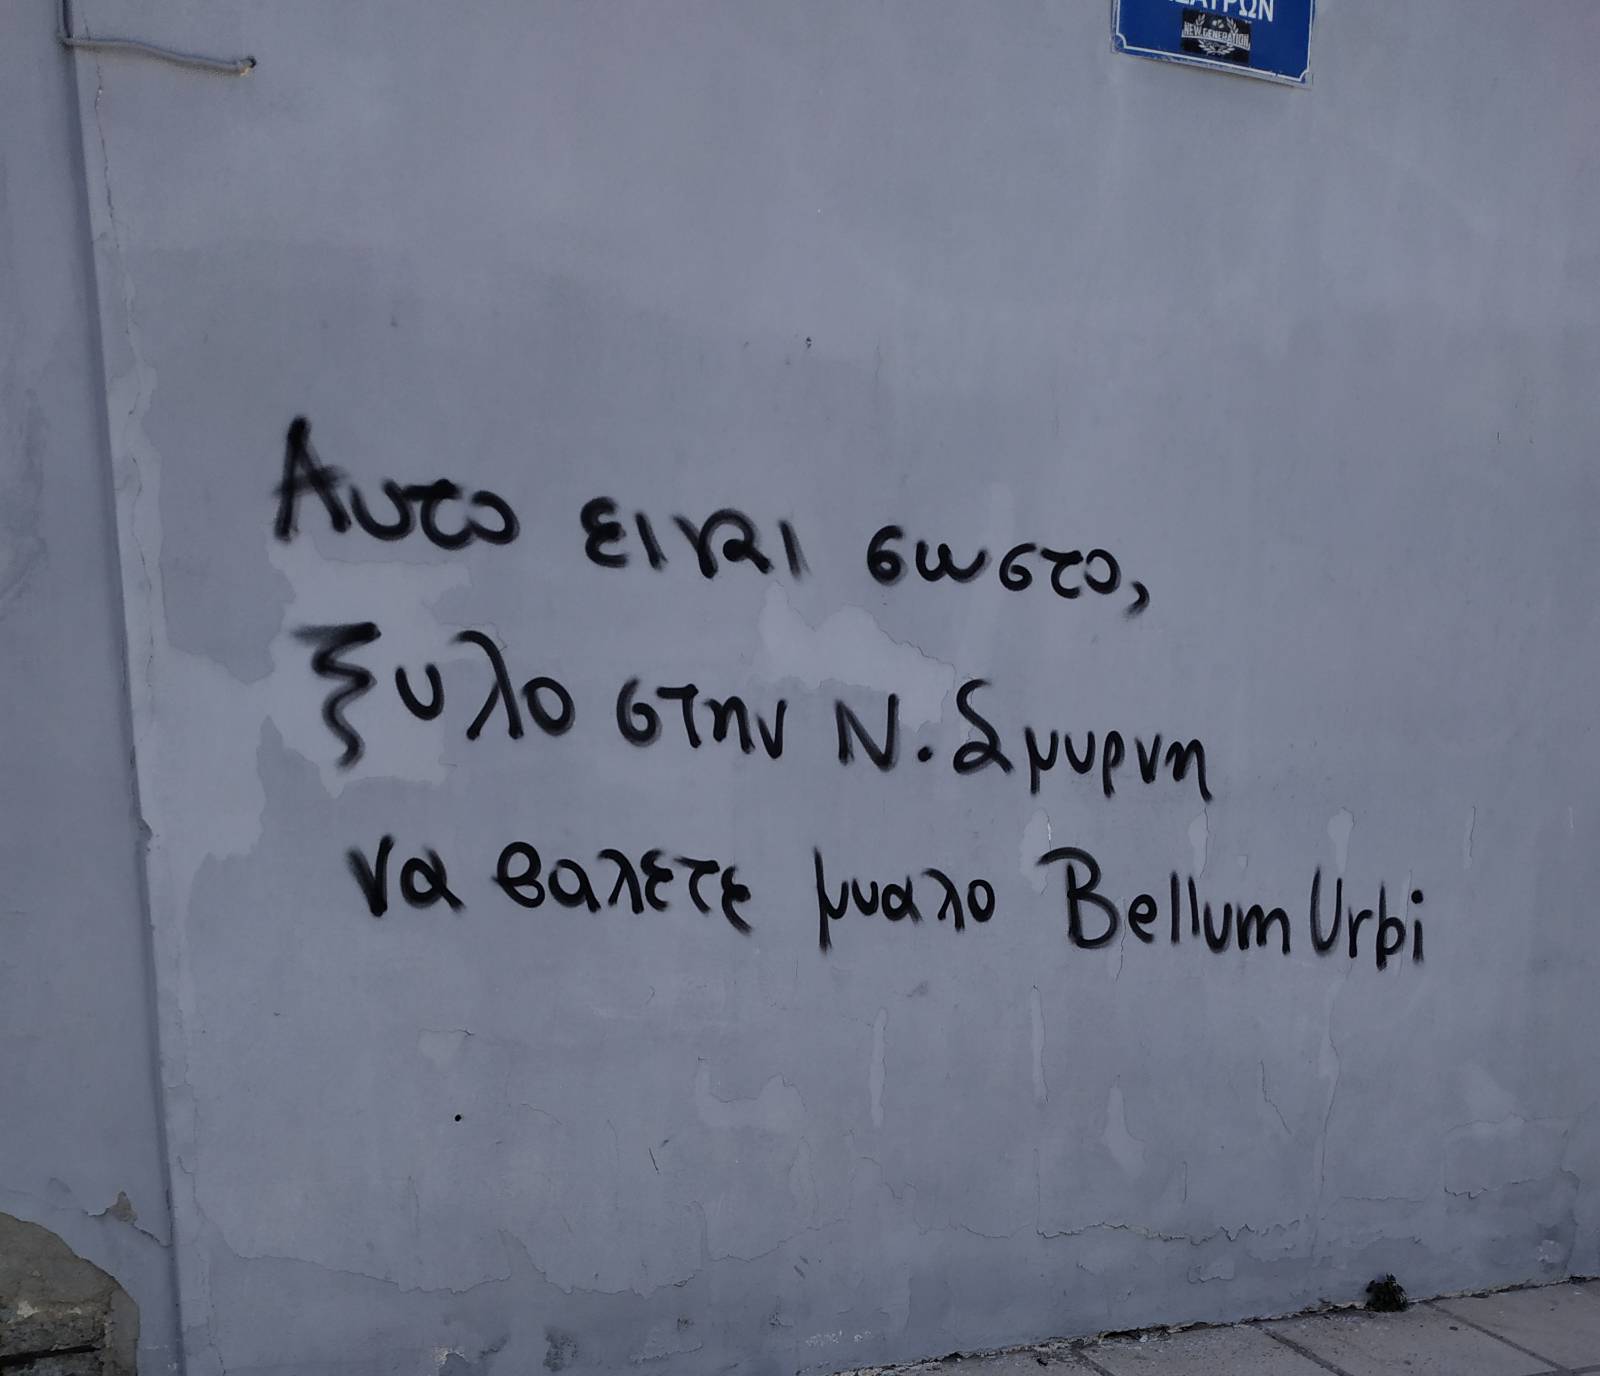 NEW GENERATION
Αυτο ειναι σωστο,
ξυλο στην Ν. Σμυρνη
να βαλετε μυαλο Bellum Urbi